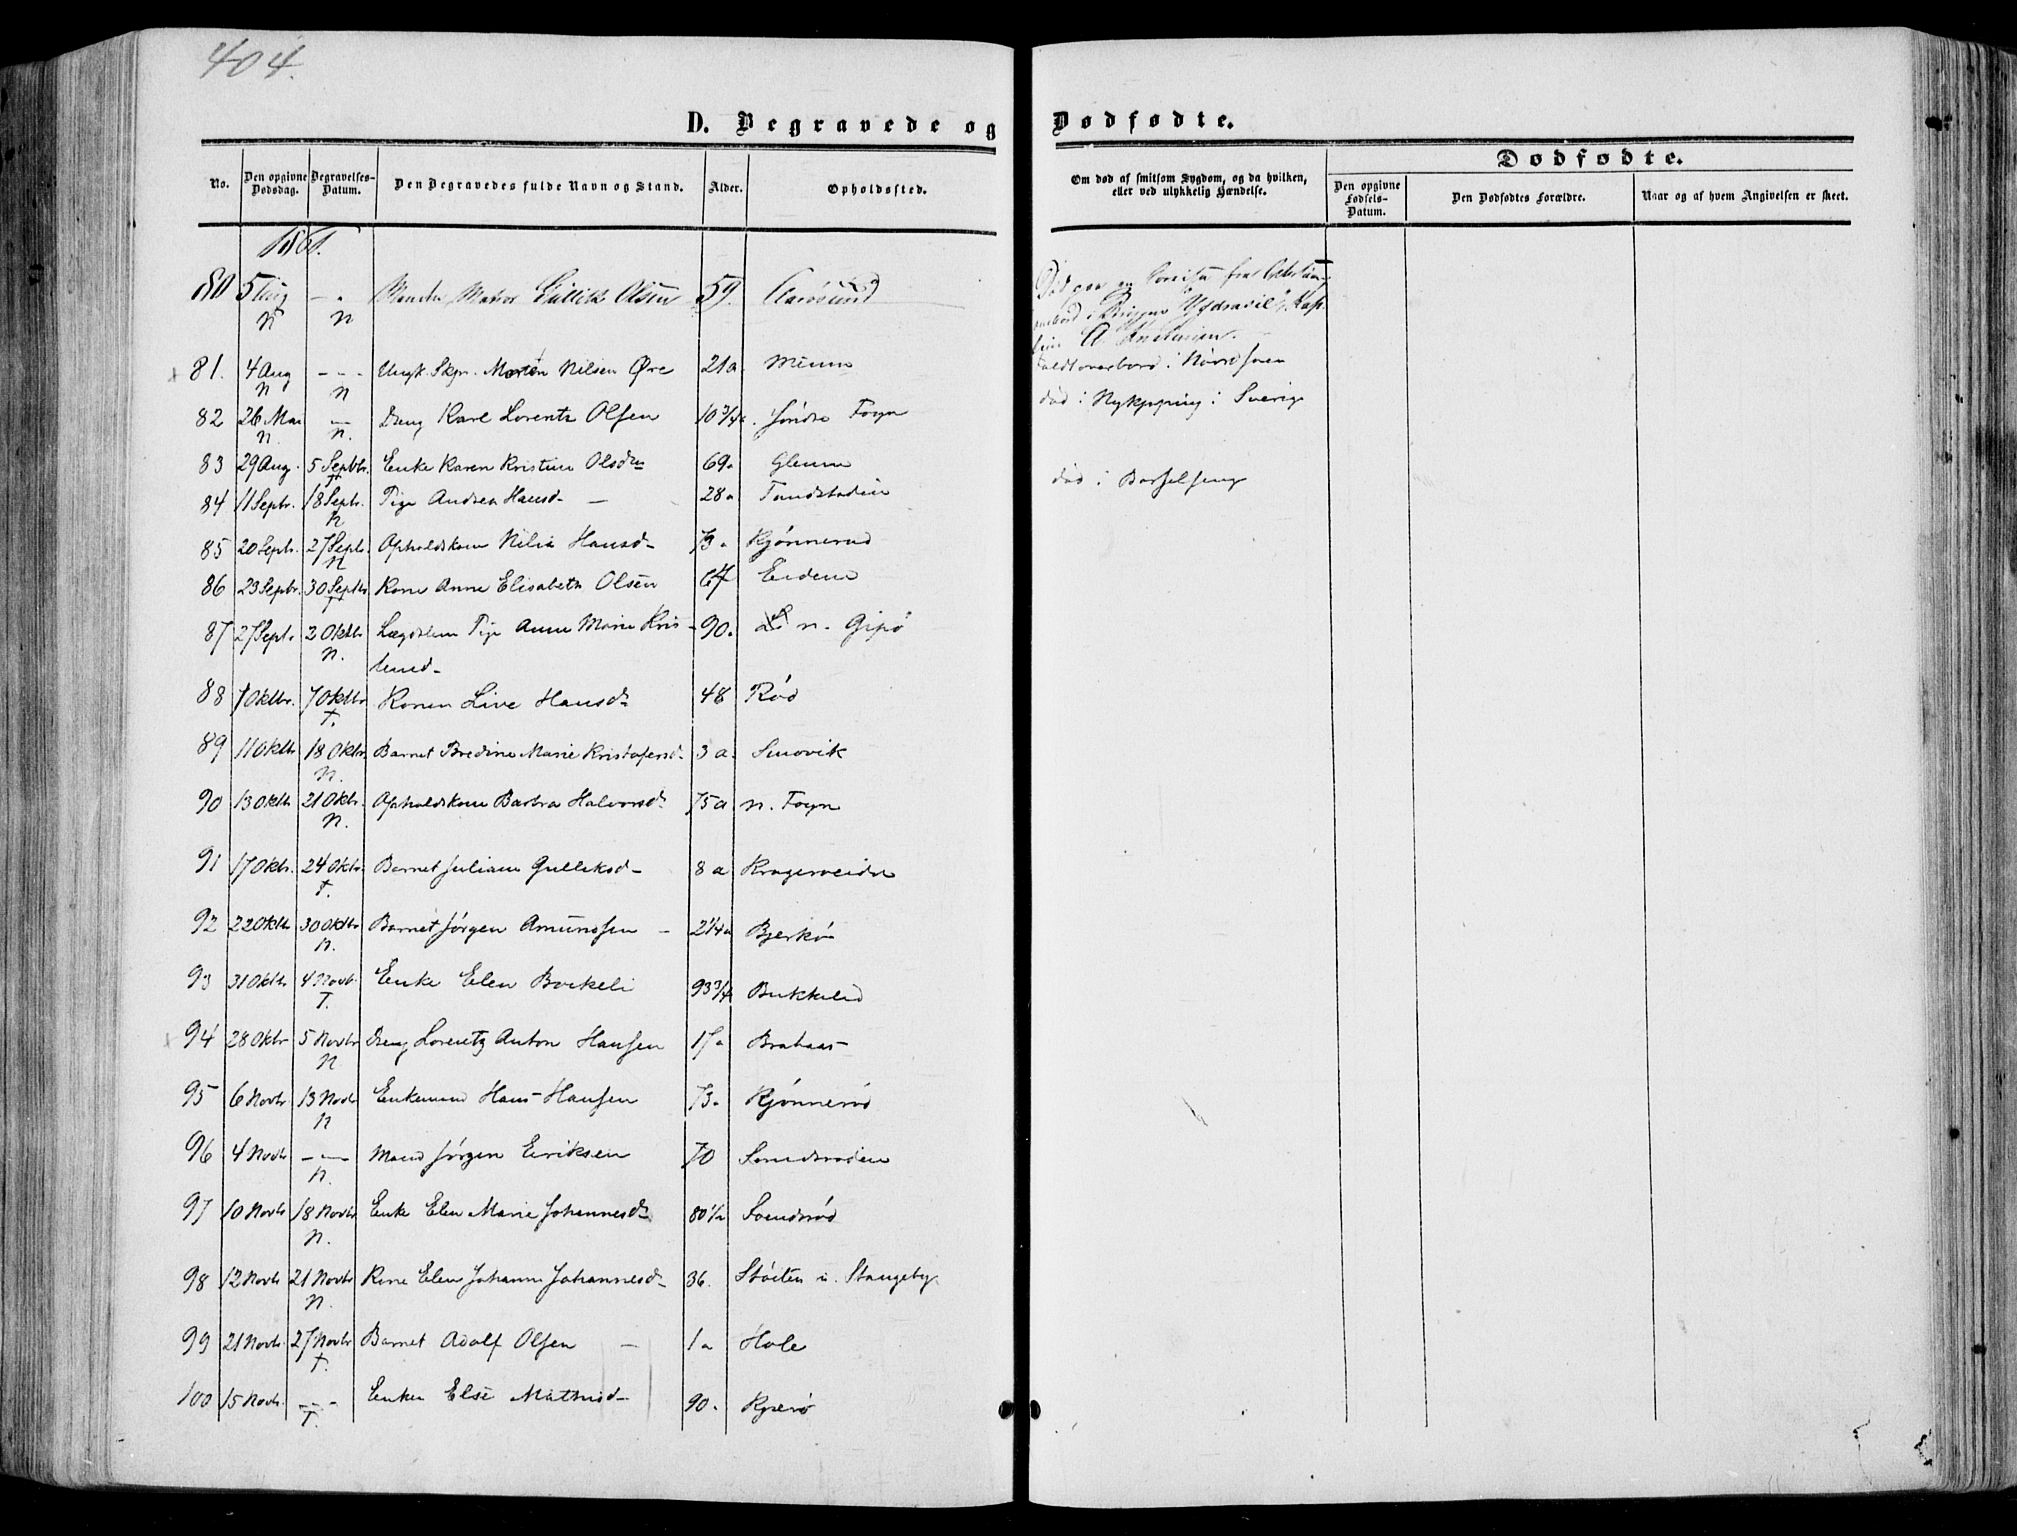 404.
D. Begravede og Dødfødte.
No.
Den opgivne Dødsdag.
Begravelses-Datum.
Den Begravedes fulde Navn og Stand.
Alder.
Opholdssted.
Om død af smitsom Sygdom, og da hvilken, eller ved ulykkelig Hændelse.
Dødfødte.
Den opgivne Fødsels-Datum.
Den Dødfødtes Forældre.
Naar og af hvem Angivelsen er skeet.
80 5 Aug N - " - N Matros Gullik Olsen 59. Aarøsund Død paa en
Briggen "Ygdrasil", Kapt.
A
81. 4 Aug N - - - N Ungk. Skpr. Morten Nilsen Øre 21 a overbord i Nordsøen
82 26 Mai N. - N. Dreng Karl Lorentz Olsen 10 3/4 a. søndre Foyn død i Nykjøping i Sverig
83 29 Aug. 5 Septbr. T Enke Karen Kristine Olsdr 69 a Glenne
84 11 Septr. 18 Septr. N Pige Andrea Hansd - 28 a død i Barselseng
85 20 Septr. 27 Septr. N Opholdskone Nilia Hansd- 73 a Kjønnerud
86 23 Septbr. 30 Septbr T Kone Anne Elisabeth Olsen 67 Eidene
87 27 Septr. 2 Oktbr N. Lægdslem Pige Anne Marie Kris-
tensd- 90. n. Gipø
88 1 Oktbr. 7 Oktbr T. Konen Live Hansdr 48 Rød
89 11 Oktbr 18 Oktbr. N. Barnet Bredine Marie Kristofersd. 3 a. Smovik
90 13 Oktb 21 Oktbr. N. Opholdskone Barbra Halvorsdr 75 a n. Foyn
91 17 Oktbr. 24 Oktbr. T. Barnet Juliane Gulliksd- 8 a
92 22 Oktb 30 Oktbr N. Barnet Jørgen Amundsen - 2 1/4 a Bjerkø
93 31 Oktb 4 Novb. T. Enke Elen Borkeli 93 3/4 Bukkelid
94 28 Oktbr 5 Novbr N Dreng Lorentz Anton Hansen 17 a Brahaas
95 6 Novbr 13 Novbr N Enkemand Hans Hansen 73. Kjønnerød
96 4 Novbr - " - N. Mand Jørgen Eriksen 70
97 10 Novbr 18 Novbr N. Enke Elen Marie Johannesdr 80 1/2 Svendsrød
98 12 Novbr 21 Novbr N. Kone Elen Johanne Johannesdr 36. Støiten u. Stangeby
99 21 Novbr. 27 Novbr T. Barnet Adolf Olsen - 1 a Hole
100 15 Novbr. - - - T. Enken Else Mathisd- 90.